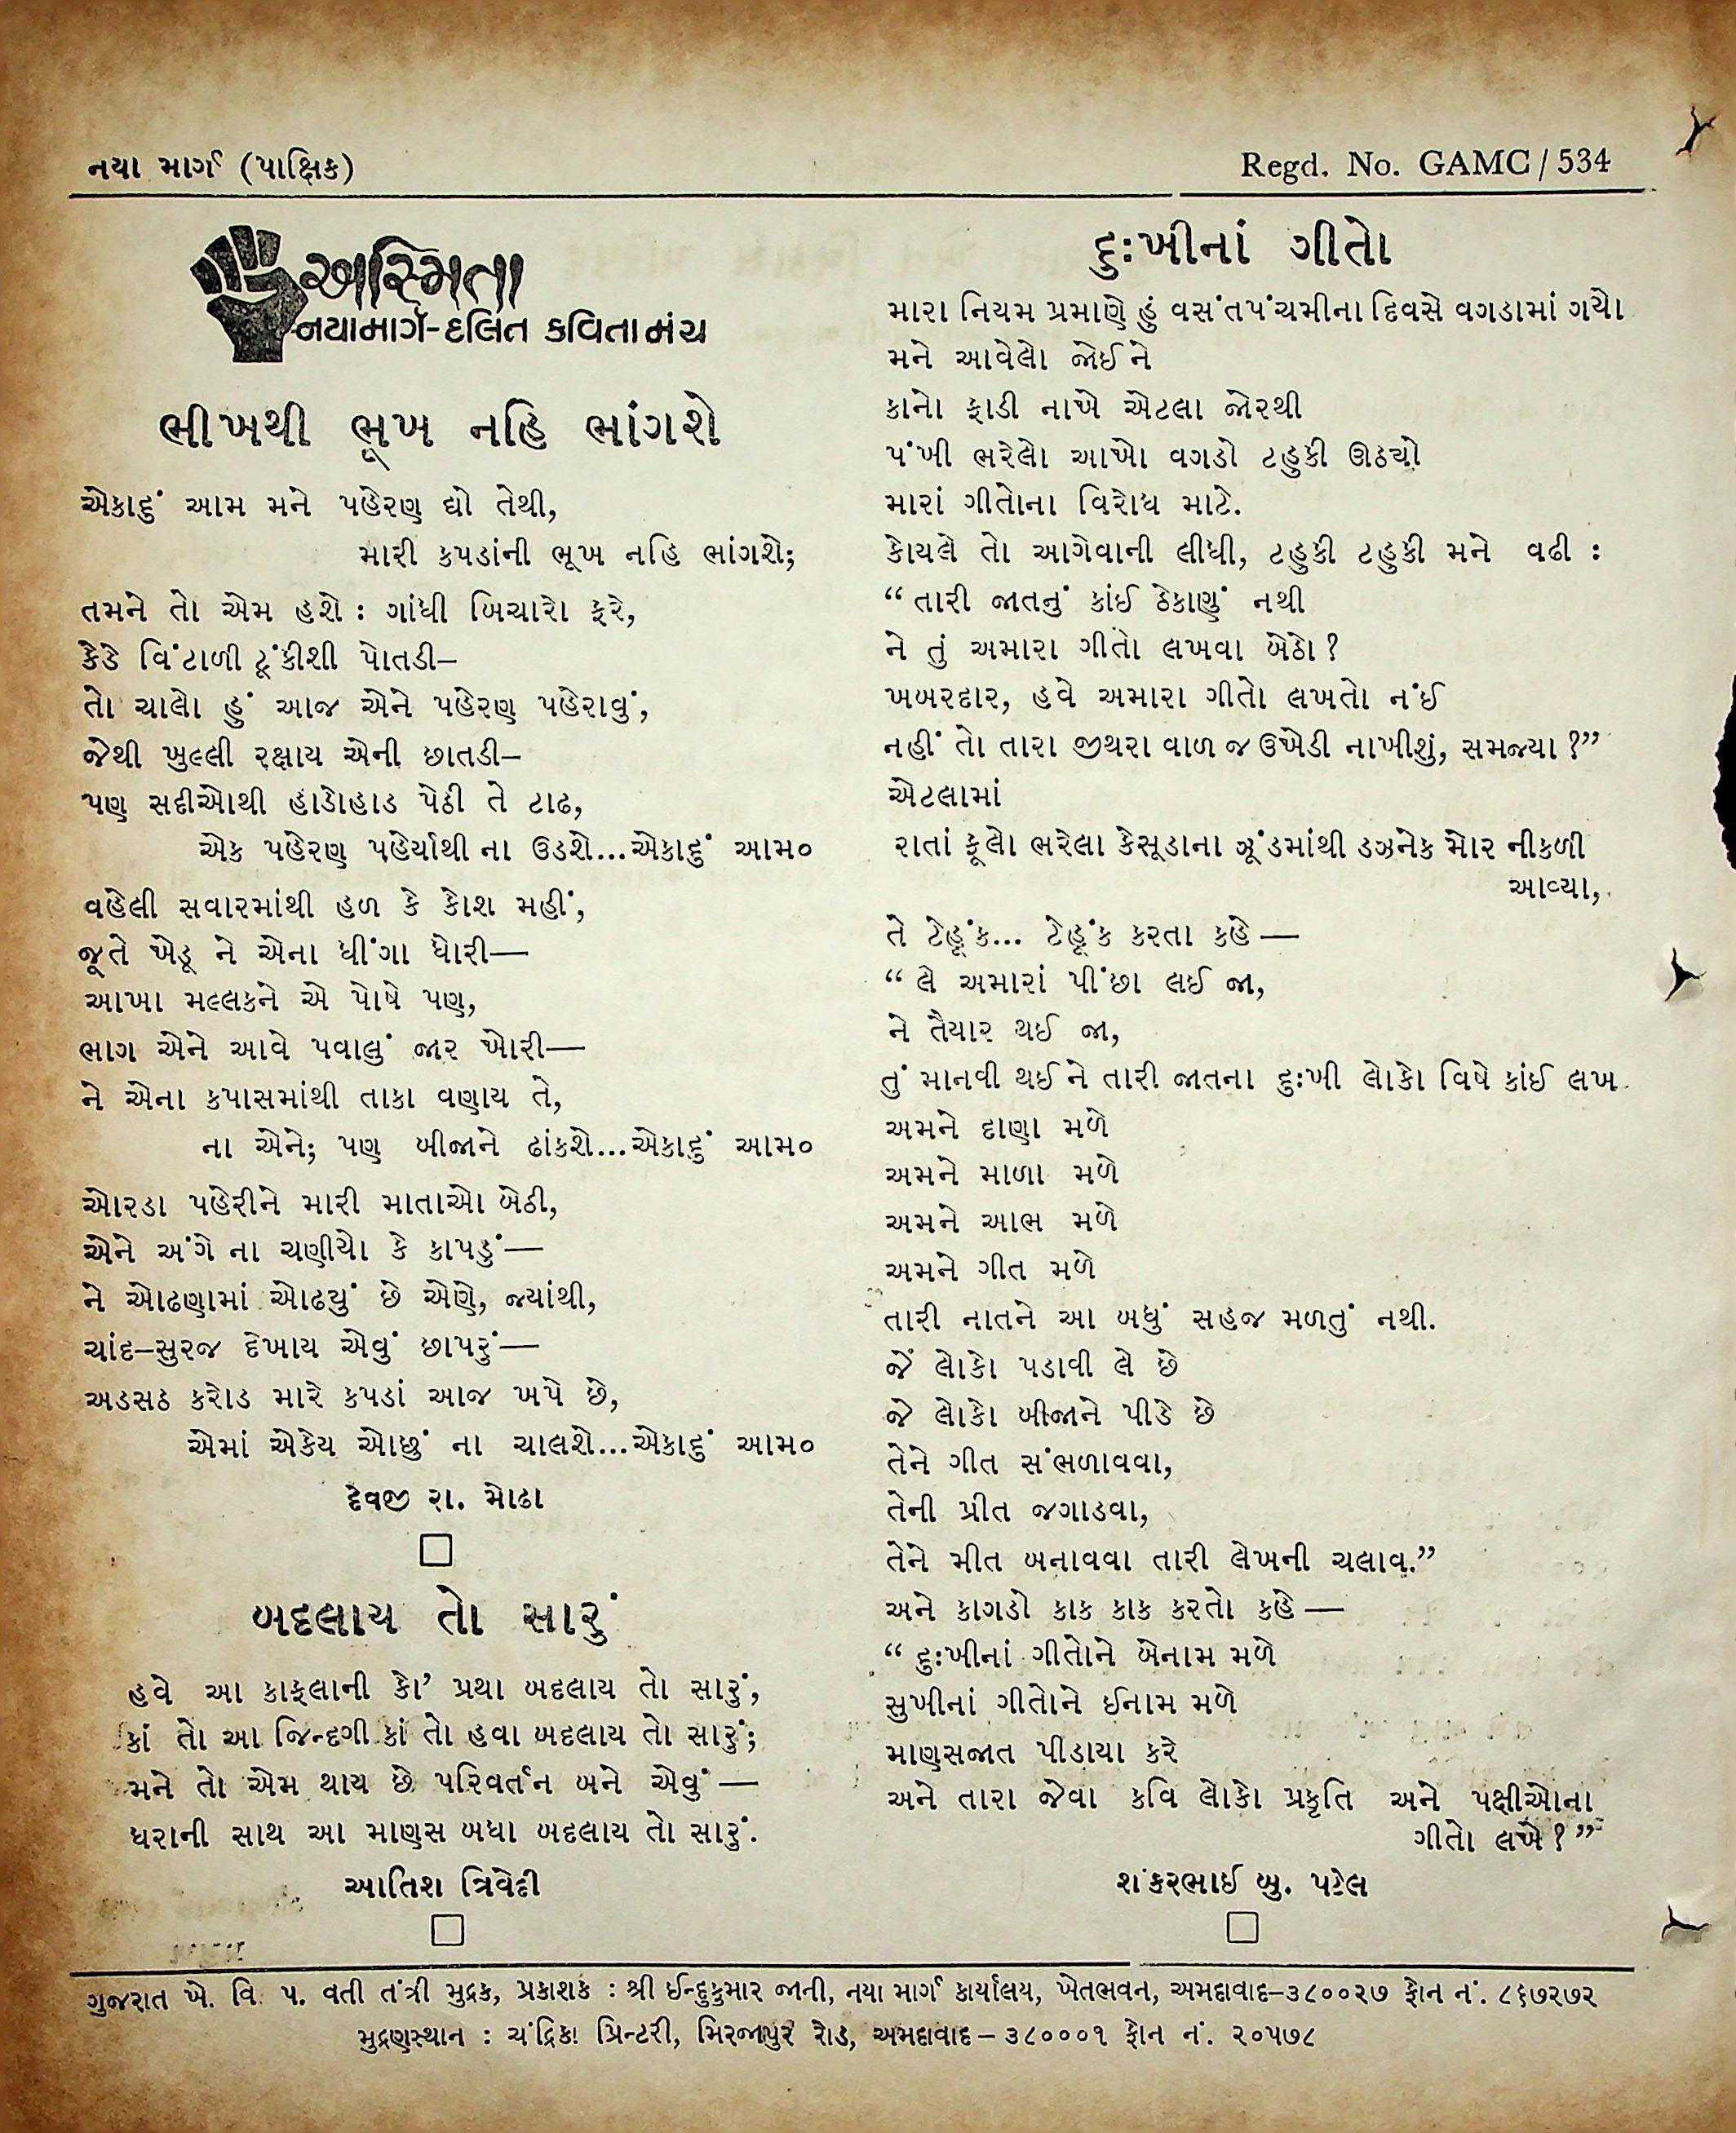 નયા માર્ગ (પાક્ષિક)
Regd. No. GAMC / 534
અસ્મિતા
નયામાર્ગ-દલિત કવિતા મંચ
ભીખથી ભૂખ નહિ ભાંગશે
એકાદું આમ મને પહેરણ દ્યો તેથી,
મારી કપડાંની ભૂખ નહિ ભાંગશે;
તમને તો એમ હશે : ગાંધી બિચારો ફરે,
કેડે વિંટાળી ટૂંકીશી પોતડી–
તો ચાલો હું આજ એને પહેરણ પહેરાવું,
જેથી ખુલ્લી રક્ષાય એની છાતડી–
પણ સદીઓથી હાડોહાડ પેઠી તે ટાઢ,
એક પહેરણ પહેર્યાથી ના ઉડશે...એકાદું આમ૦
વહેલી સવારમાંથી હળ કે કોશ મહીં,
જૂતે ખેડૂ ને એના ધીંગા ધોરી—
આખા મલ્લકને એ પોષે પણ,
ભાગ એને આવે પવાલું જાર ખોરી—
ને એના કપાસમાંથી તાકા વણાય તે,
ના એને; પણ બીજાને ઢાંકશે...એકાદું આમ૦
ઓરડા પહેરીને મારી માતાઓ બેઠી,
એને અંગે ના ચણીયો કે કાપડું—
ને ઓઢણામાં ઓઢયું છે એણે, જ્યાંથી,
ચાંદ–સુરજ દેખાય એવું છાપરું—
અડસઠ કરોડ મારે કપડાં આજ ખપે છે,
એમાં એકેય ઓછું ના ચાલશે...એકાદું આમ૦
દેવજી રા. મોઢા
બદલાય તો સારું
હવે આ કાફલાની કો’ પ્રથા બદલાય તો સારું,
કાં તો આ જિન્દગી કાં તો હવા બદલાય તો સારું;
મને તો એમ થાય છે પરિવર્તન બને એવું —
ધરાની સાથ આ માણસ બધા બદલાય તો સારું.
આતિશ ત્રિવેદી
દુઃખીનાં ગીતો
મારા નિયમ પ્રમાણે હું વસંતપંચમીના દિવસે વગડામાં ગયો
મને આવેલો જોઈને
કાનો ફાડી નાખે એટલા જોરથી
પંખી ભરેલો આખો વગડો ટહુકી ઊઠયો
મારાં ગીતોના વિરોધ માટે.
કોયલે તો આગેવાની લીધી, ટહુકી ટહુકી મને વઢી :
“ તારી જાતનું કાંઈ ઠેકાણું નથી
ને તું અમારા ગીતો લખવા બેઠો ?
ખબરદાર, હવે અમારા ગીતો લખતો નંઈ
નહીં તો તારા જીથરા વાળ જ ઉખેડી નાખીશું, સમજ્યા ?”
એટલામાં
રાતાં ફૂલો ભરેલા કેસૂડાના ઝૂંડમાંથી ડઝનેક મોર નીકળી
આવ્યા,
તે ટેહૂંક... ટેહૂંક કરતા કહે —
“ લે અમારાં પીંછા લઈ જા,
ને તૈયાર થઈ જા,
તું માનવી થઈને તારી જાતના દુઃખી લોકો વિષે કાંઈ લખ
અમને દાણા મળે
અમને માળા મળે
અમને આભ મળે
અમને ગીત મળે
તારી નાતને આ બધું સહજ મળતું નથી.
જે લોકો પડાવી લે છે
જે લોકો બીજાને પીડે છે
તેને ગીત સંભળાવવા,
તેની પ્રીત જગાડવા,
તેને મીત બનાવવા તારી લેખની ચલાવ.”
અને કાગડો કાક કાક કરતો કહે —
“ દુઃખીનાં ગીતોને બેનામ મળે
સુખીનાં ગીતોને ઈનામ મળે
માણસજાત પીડાયા કરે
અને તારા જેવા કવિ લોકો પ્રકૃતિ અને પક્ષીઓના
ગીતો લખે ? ”
શંકરભાઈ બુ. પટેલ
ગુજરાત ખે. વિ. પ. વતી તંત્રી મુદ્રક, પ્રકાશક : શ્રી ઈન્દુકુમાર જાની, નયા માર્ગ કાર્યાલય, ખેતભવન, અમદાવાદ–૩૮૦૦૨૭ ફોન નં. ૮૬૭૨૭૨
મુદ્રણસ્થાન : ચંદ્રિકા પ્રિન્ટરી, મિરજાપુર રોડ, અમદાવાદ – ૩૮૦૦૦૧ ફોન નં. ૨૦૫૭૮